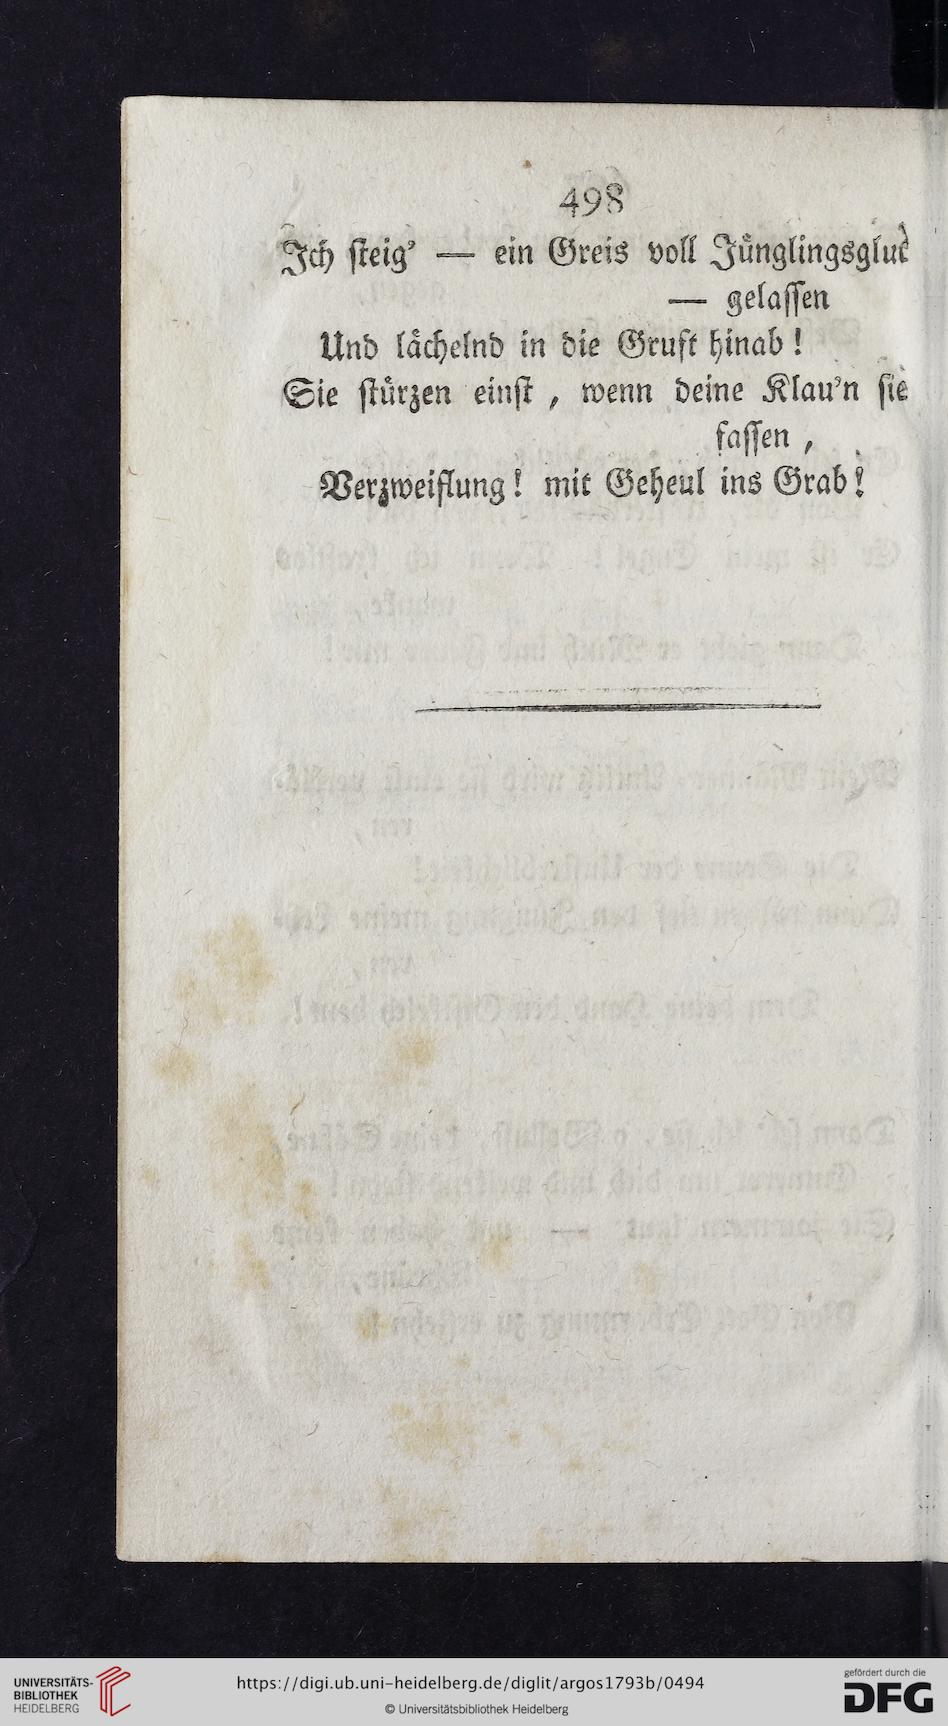 498
Ich steig' — ein Greis voll Jünglingsglut
— gelassen
Und lächelnd in die Gruft hinab!
Sie stürzen einst, wenn deine Klau'n sie
fassen,
Verzweiflung! mit Geheul ins Grab!
UNIVERSITÄTS-
BIBLIOTHEK
HEIDELBERG
https://digi.ub.uni-heidelberg.de/diglit/argos1793b/0494
© Universitätsbibliothek Heidelberg
gefördert durch die
DFG